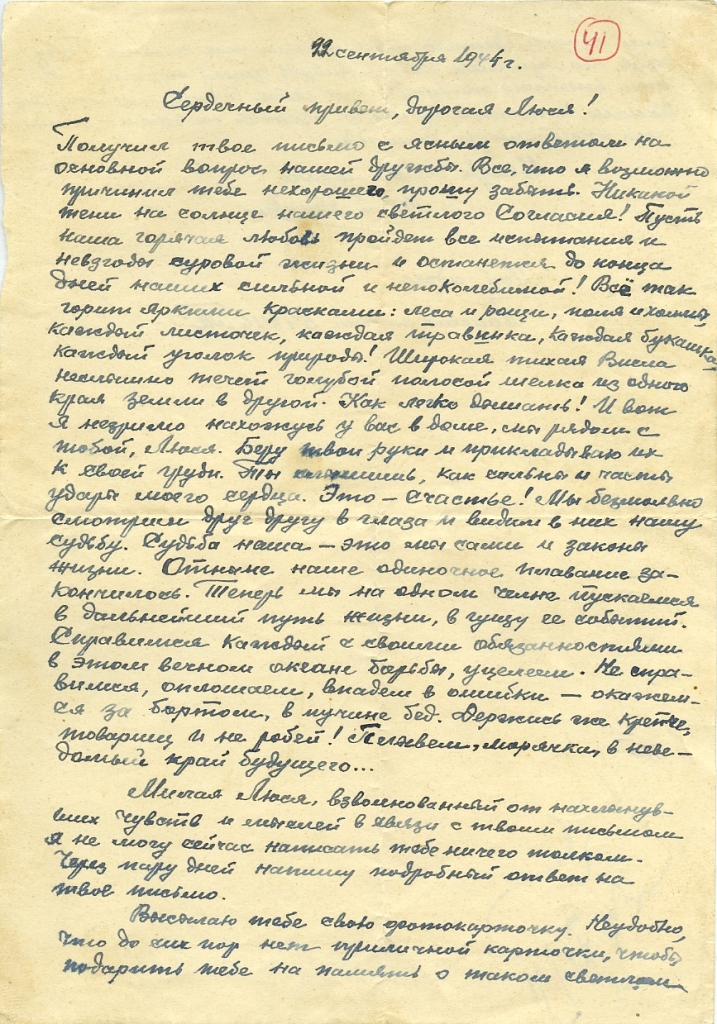 22 сентября 1944 г.
41
Сердечный привет, дорогая Люся!
Получил твое письмо с ясным ответом на
основной вопрос нашей дружбы. Все, что я возможно
причинил тебе нехорошего, прошу забыть. Никакой
тени на солнце нашего светлого Согласия! Пусть
наша горячая любовь пройдет все испытания и
невзгоды суровой жизни и останется до конца
дней наших сильной и непоколебимой! Всё так
горит яркими красками: леса и рощи, поля и холмы,
каждый листочек, каждая травинка, каждая букашка,
каждый уголок природы! Широкая тихая Висла
неслышно течет голубой полосой шелка из одного
края земли в другой. Как легко дышать! И вот
я незримо нахожусь у вас в доме, мы рядом с
тобой, Люся. Беру твои руки и прикладываю их
к своей груди. Ты слышишь, как сильны и часты
удары моего сердца. Это – Счастье! Мы безмолвно
смотрим друг другу в глаза и видим в них нашу
судьбу. Судьба наша – это мы сами и законы
жизни. Отныне наше одиночное плавание за-
кончилось. Теперь мы на одном челне пускаемся
в дальнейший путь жизни, в гущу ее событий.
Справимся каждый с своими обязанностями
в этом вечном океане борьбы, уцелеем. Не спра-
вимся, оплошаем, впадем в ошибки – окажем-
ся за бортом, в пучине бед. Держись же крепче,
товарищ и не робей! Плывем, морячка, в неве-
домый край будущего...
Милая Люся, взволнованный от нахлынув-
ших чувств и мыслей в связи с твоим письмом
я не могу сейчас написать тебе ничего толком.
Через пару дней напишу подробный ответ на
твое письмо.
Высылаю тебе свою фотокарточку. Неудобно,
что до сих пор нет приличной карточки, чтобы
подарить тебе на память о таком светлом